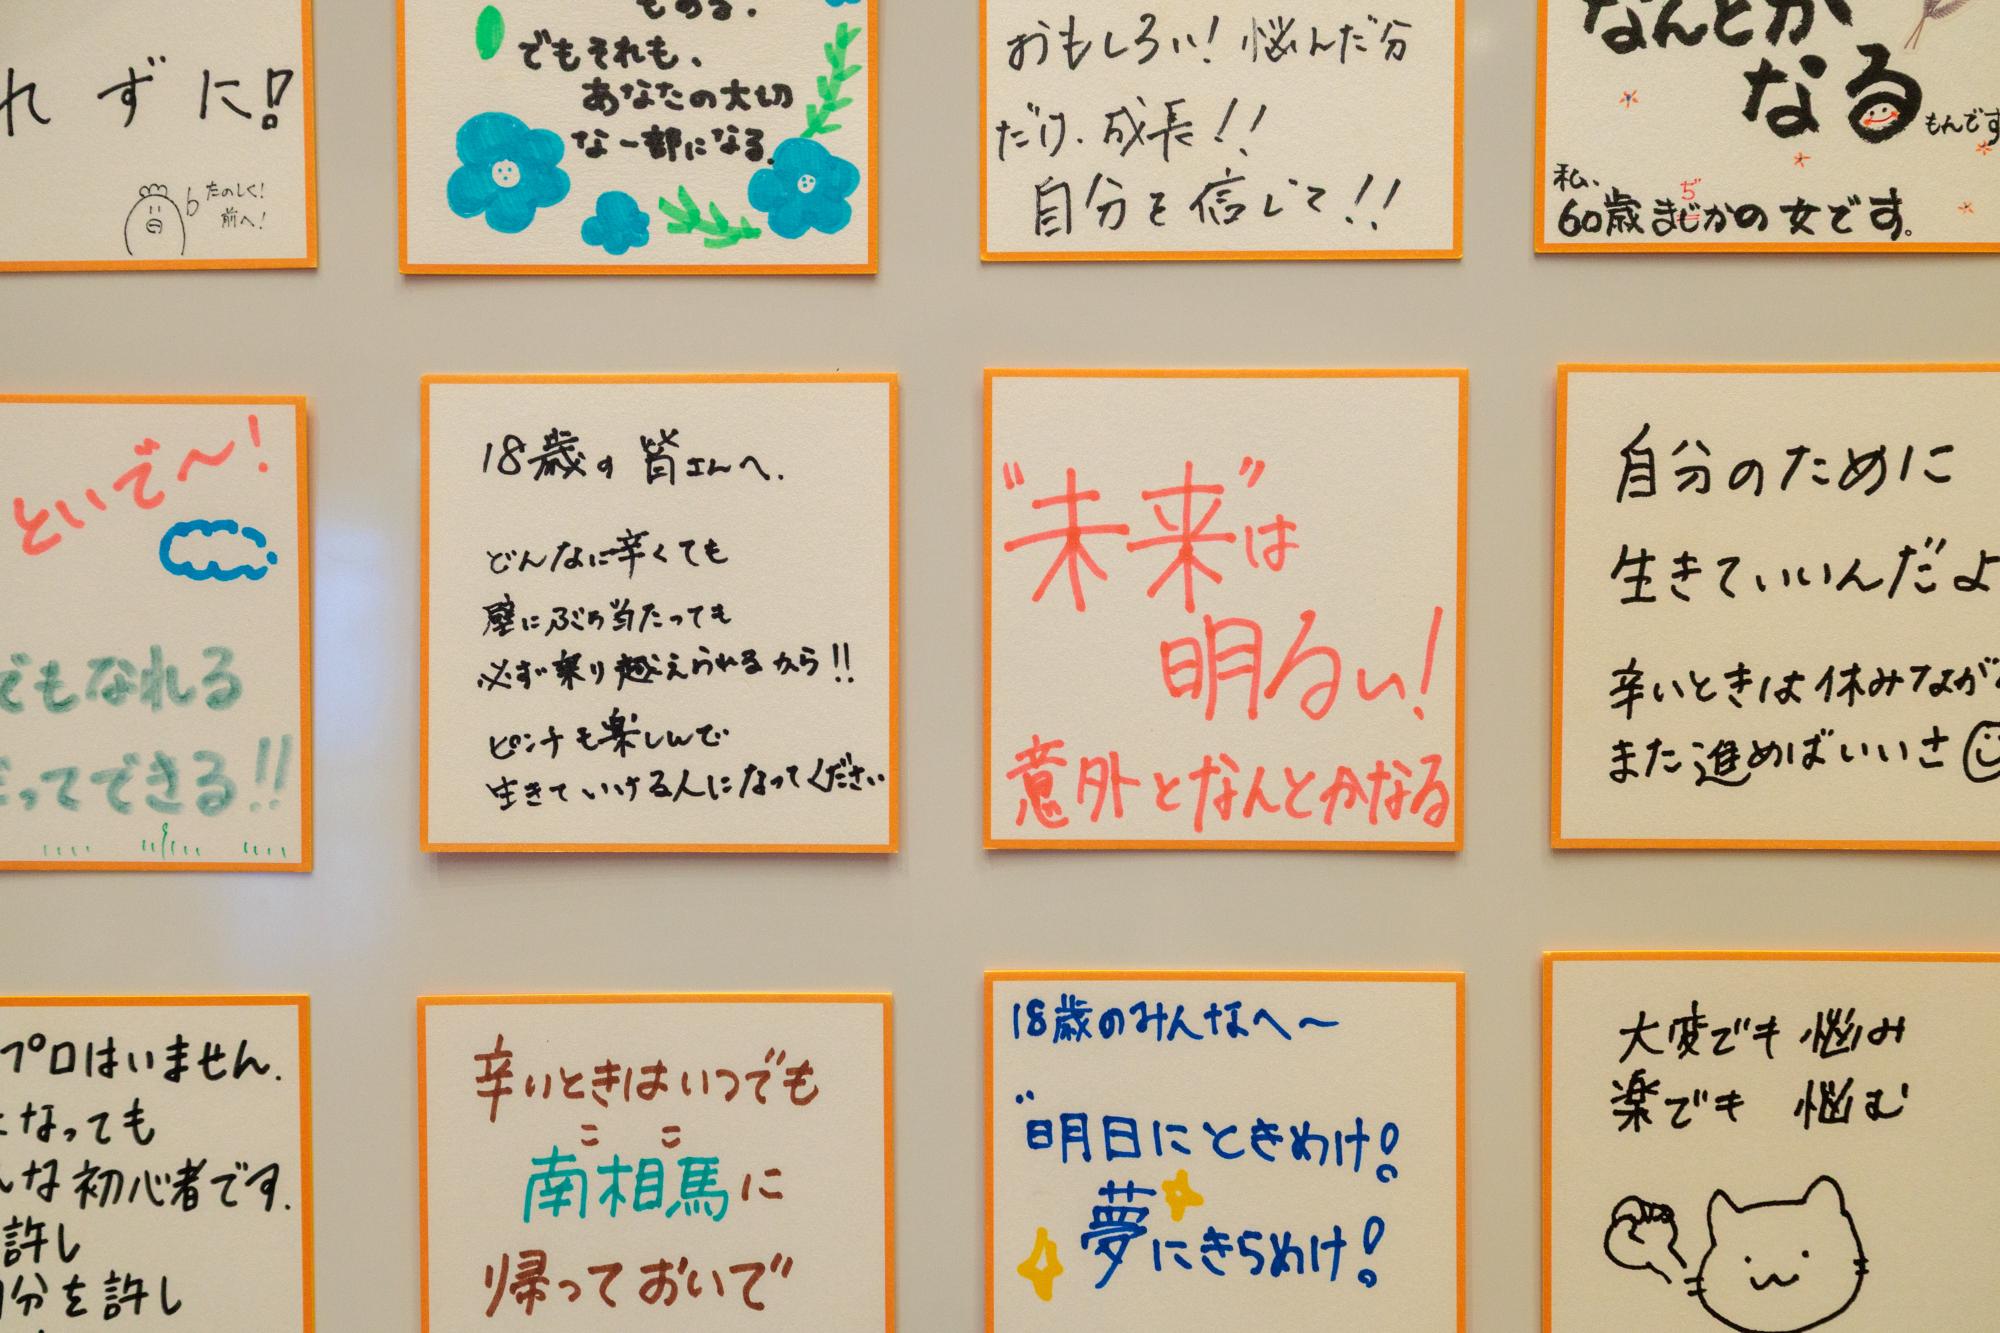 れずに!
たのしく!
前へ!
でもそれも、
あなたの大切
な一部になる.
おもしろい! 悩んだ分
だけ、成長!!
自分を信じて!!
なんとか
なる
もんです
私、
ぢ
60歳まじかの女です。
といで〜!
でもなれる
だってできる!!
18歳の皆さんへ.
どんなに辛くても
壁にぶち当たっても
必ず乗り越えられるから!!
ピンチも楽しんで
生きていける人になってください
"未来"は
明るい!
意外となんとかなる
自分のために
生きていいんだよ
辛いときは休みながら
また進めばいいさ
プロはいません.
なっても
んな初心者です.
許し
自分を許し
辛いときはいつでも
ここ
南相馬に
帰っておいで"
18歳のみんなへ〜
"明日にときめけ!
夢にきらめけ!
大変でも 悩み
楽でも 悩む